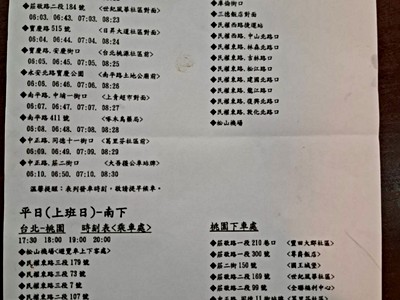 ◆莊敬路二段184號 <世紀風華社區對面>
06:03、06:43、07:03、08:23
◆寶慶路515號 <日昇大道社區對面>
06:04、06:44、07:04、08:24
◆寶慶路、安慶街口 <台北桃源社區前>
06:05、06:45、07:05、08:25
◆永安北路寶慶公園 <南平路土地公廟前>
06:06、06:46、07:06、08:26
◆南平路、中埔一街口 <上青超市對面>
06:07、06:47、07:07、08:27
◆南平路411號 <啄木鳥藥局>
06:08、06:48、07:08、08:28
◆中正路、同德十一街口 <葛里芬社區前>
06:09、06:49、07:09、08:29
◆中正路、莊二街口 <大善騰公車站牌>
06:10、06:50、07:10、08:30
溫馨提醒：表列發車時刻，敬請提早候車。
◆庫倫街口
◆三德飯店對面
◆民權西路捷運站
◆民權西路、中山北路口
◆民權東路、林森北路口
◆民權東路、吉林路口
◆民權東路、松江路口
◆民權東路、建國北路口
◆民權東路、龍江路口
◆民權東路、復興北路口
◆民權東路、敦化北路口
◆松山機場
平日(上班日)-南下
台北-桃園 時刻表<乘車處>
17:30 18:00 19:00 20:00
◆松山機場<遊覽車上下客處>
◆民權東路三段179號
◆民權東路三段73號
◆民權東路二段7號
◆民權東路二段107號
桃園下車處
◆莊敬路一段210巷口 <豐田大郡社區>
◆莊敬路一段300號 <尊爵飯店>
◆莊二街150號 <國王城堡>
◆莊敬路二段169號 <世紀風華社區>
◆莊敬路二段99號 <全聯福利中心>